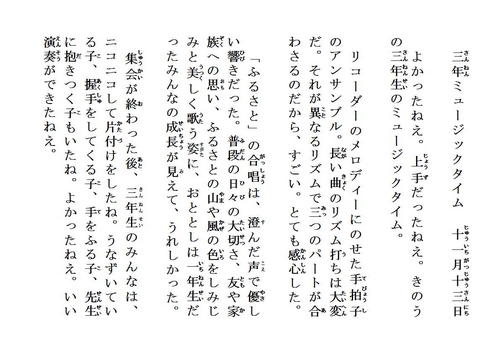 三年ミュージックタイム　十一月十三日
よかったねえ。上手だったねえ。きのう
の三年生のミュージックタイム。
リコーダーのメロディーにのせた手拍子
のアンサンブル。長い曲のリズム打ちは大変
だ。それが異なるリズムで三つのパートが合
わさるのだから、すごい。とても感心した。
「ふるさと」の合唱は、澄んだ声で優し
い響きだった。普段の日々の大切さ、友や家
族への思い、ふるさとの山や風の色をしみじ
みと美しく歌う姿に、おととしは一年生だ
ったみんなの成長が見えて、うれしかった。
集会が終わった後、三年生のみんなは、
ニコニコして片付けをしたね。うなずいてい
る子、握手をしてくる子、手をふる子、先生
に抱きつく子もいたね。よかったねえ。いい
演奏ができたねえ。